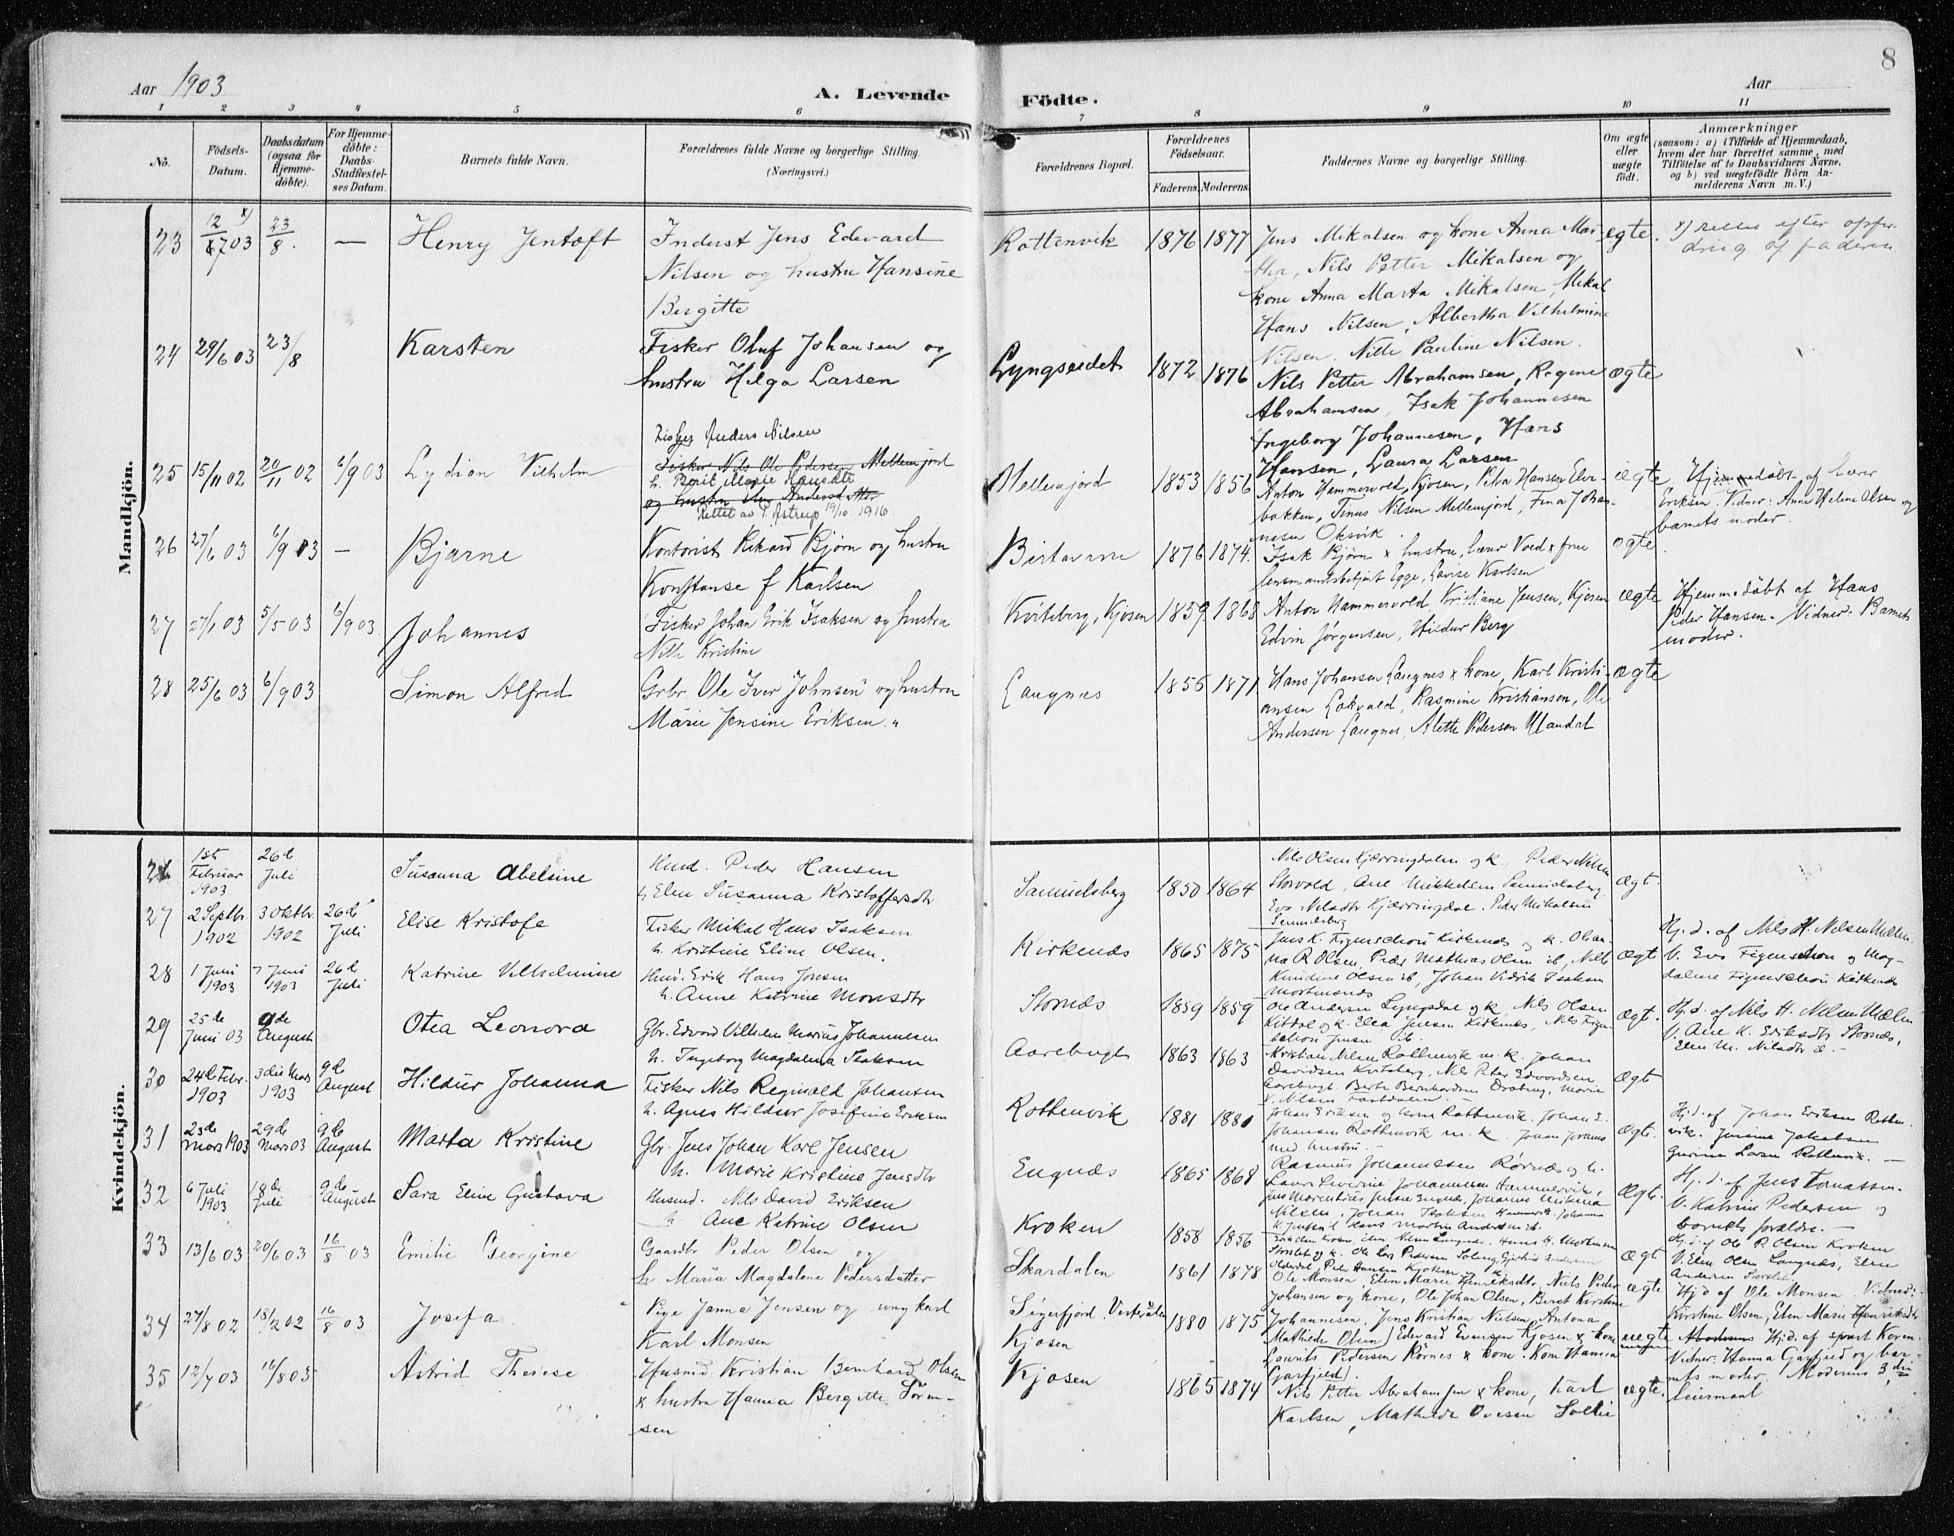 8
Aar 1903
A. Levende
Födte.
Aar
1 2 3 4 5 6 7 8 9 10 11
Nö.
Födsels-
Datum.
Daabsdatum
(ogsaa for
Hjemme-
döbte).
For Hjemme-
döbte:
Daabs-
Stadfæstel-
ses Datum.
Barnets fulde Navn.
Forældrenes fulde Navne og borgerlige Stilling.
(Næringsvei.)
Forældrenes Bopæl.
Forældrenes
Födselsaar.
Faderens. Moderens.
Faddernes Navne og borgerlige Stilling.
Om ægte
eller
uægte
födt.
Anmærkninger
(saasom: a) i Tilfælde af Hjemmedaab,
hvem der har forrettet samme, med
Tilföielse af to Daabsvidners Navne,
og b) ved uægtefödte Börn An-
melderens Navn m. V.)
Mandkjön.
23 12/7 03 23/8. — Henry Jentoft
Inderst Jens Edevard
Nilsen og hustru Hansine
Bergitte
Rottenvik 1876 1877
Jens Mikalsen og kone Anna Mar-
tha, Nils Petter Mikalsen og
kone Anna Marta Mikalsen, Mikal
Hans Nilsen, Albertha Vilhelmine
Nilsen. Nille Pauline Nilsen.
egte.
24 29/6 03 23/8 Karsten
Fisker Oluf Johansen og
hustru Helga Larsen
Lyngseidet 1872 1876
Nils Petter Abrahamsen, Regine
Abrahamsen, Isak Johannesen
Ingeborg Johannesen, Hans
Hansen, Laura Larsen
ægte
25 15/11 02 20/11 02 6/9 03 Lydion Vilhelm
Fisker Anders Nilsen
Fisker Nils Ole Pedersen Mellemjord
h. Berit Marie Hansdtr
og hustru Andersdatter
Rettet av P. Astrup 19/10. 1916.
Mellemjord 1853 1856
Anton Hammervold, Kjosen, Petra Hansen Elve-
bakken, Tinus Nilsen Mellemjord, Fina Johan-
nesen Oksvik.
ægte
Hjemmedøbt af lærer
Eriksen. Vidner: Anne Helene Olsen og
barnets moder.
26 27/6 03 6/9 03 — Bjarne
Kontorist Rikard Bjørn og hustru
Konstanse f Karlsen
Birtavarre 1876 1874.
Isak Bjørn x hustru, lærer Vold x frue
lensmandsbetjent Egge, Lovise Karlsen
ægte
27 27/1 03 5/5 03 6/9 03. Johannes
Fisker Johan Erik Isaksen og hustru
Nille Kristine
Kviteberg, Kjosen 1859 1868
Anton Hammervold, Kristiane Jensen, Kjosen
Edvin Jørgensen, Hildur Berg
ægte
Hjemmedøbt af Hans
Peder Hansen. Vidner: Barnets
moder.
28 25/6 03 6/9 03 Simon Alfred
Grbr. Ole Iver Johnsen og hustru
Marie Jensine Eriksen.
Langnes 1855 1871
Hans Johansen Langnes x kone, Karl Kristi-
ansen Lokvold, Rasmine Kristiansen, Ole
Andersen Langnes, Alette Pedersen Mandal
ægte
Kvindekjön.
26 1st Februar 1903 26de Juli Susanna Abelsine
Husd. Peder Hansen
h Elen Susanna Kristoffersdtr
Samuelsberg 1850 1864
Nils Olsen Kjærringdalen og k, Peder Nilsen
Storvold, Ane Mikkelsen Samuelsberg
Eva Nilsdtr Kjærringdal. Peder Mikalsen
Samuelsberg
Ægt.
27 2 Septbr 1902 3 Oktbr. 1902 26de Juli Elise Kristofe
Fisker Mikal Hans Isaksen
h. Kristine Eline Olsen.
Kirkenes 1865 1875
Jens K. Figenschou Kirkenes og k. Olian-
na R Olsen, Peder Mathias Olsen ib, Nils
Knudine Olsen ib, Johan Vidrik Isaksen
Ægt
Hj. d. af Nils H. Nilsen
V. Eva Figenschou og Mag-
dalene Figenschou Kirkenes
28 1 Juni 1903 7 Juni 1903 26de Juli Katrine Vilhelmine
Husd. Erik Hans Jonsen
h. Anne Katrine Monsdtr
Stornes 1859 1859
Ole Andersen Lyngsdal og k, Nils Olsen
Kitdal og k. Elea Jensen Kirkenes, Nils Figen-
schou Jensen ib.
Ægt.
Hj. d. af Nils H. Nilsen
V. Ane K. Eriksdtr Stornes,
Elen M. Nilsdtr
29 25de Juni 03 9de August Otea Leonora
Gbr. Edvard Vilhelm Marius Johannesen
h. Ingeborg Magdalena Isaksen
Aarebugt 1863 1863
Kristian Nilsen Rottenvik m. k. Johan
Davidsen Kvitsberg, Nils Peter Edvardsen
Aarebugt. Berte Bernhardsen
Ægt
30 24de Febr. 1903 3die Mars 1903 9de August Hildur Johanna
Fisker Nils Reginald Johansen
h. Agnes Hildur Josefine Eriksen
Rottenvik 1881 1880
Johan Eriksen og Rottenvik. Johan E.
Johansen Rottenvik m. k.
med hustru.
Ægt.
Hj. d. af Johan Eriksen Rotten-
vik. Jensine Jakobsen
Larsen Rottenvik. —
31 23de Mars 1903 29de Mars 03 9de August Marta Kristine
Gbr. Jens Johan Karl Jensen
h. Marie Kristine Jensdtr
Engnes 1865 1868
Rasmus Johannesen Rørnes og h.
Ægt.
Hj. d. af Jens Tomassen.
V. Katrine Pedersen og
barnets forældre. —
32 6 Juli 1903 18de Juli 9de August Sara Eline Gustava
Husmd. Nils David Eriksen
h. Ane Katrine Olsen
Kroken 1858 1856
Ægt
Hj. d. af Ole P. Olsen Kroken
V. Elen Olsen Langnes, Eline
Andersen
33 13/6 03 20/6 03 16/8 03 Emilie Georgine
Gaardbr Peder Olsen og
h. Maria Magdalene Pedersdatter
Skardalen 1861 1878
Ole Monsen, Elen Marie Henriksdtr, Nils Peder
Johansen og kone, Ole Johan Olsen, Beret Kirstine
Johannesen.
ægte
Hjd af Ole Monsen. Vidner:
Kirstine Olsen, Elen Marie Henriksdtr
34 27/8 02 18/12 02 16/8 03 Josefa
Pige Janna Jensen og ungkarl
Karl Monsen
Sigerfjord, Vesteraalen
Kjosen
1880 1875
Jens Kristian Nielsen, Antona
Mathilde Olsen, Edevard Evensen Kjosen x kone
Laurits Pedersen Rørnes x kone. Kone Hanna
Garfjeld.
uegte
Hjd. af
Vidner: Hanna Garfjeld og bar-
nets moder. Moderens 3die
leiermaal
35 12/7 03 16/8 03 Astrid Therese.
Husmd. Kristian Bernhard Olsen
x hustru Hanna Bergitte Sørn-
sen
Kjosen 1865 1874
Nils Petter Abrahamsen x kone, Karl
Karlsen, Mathilde Ovesen Sollie
ægte.